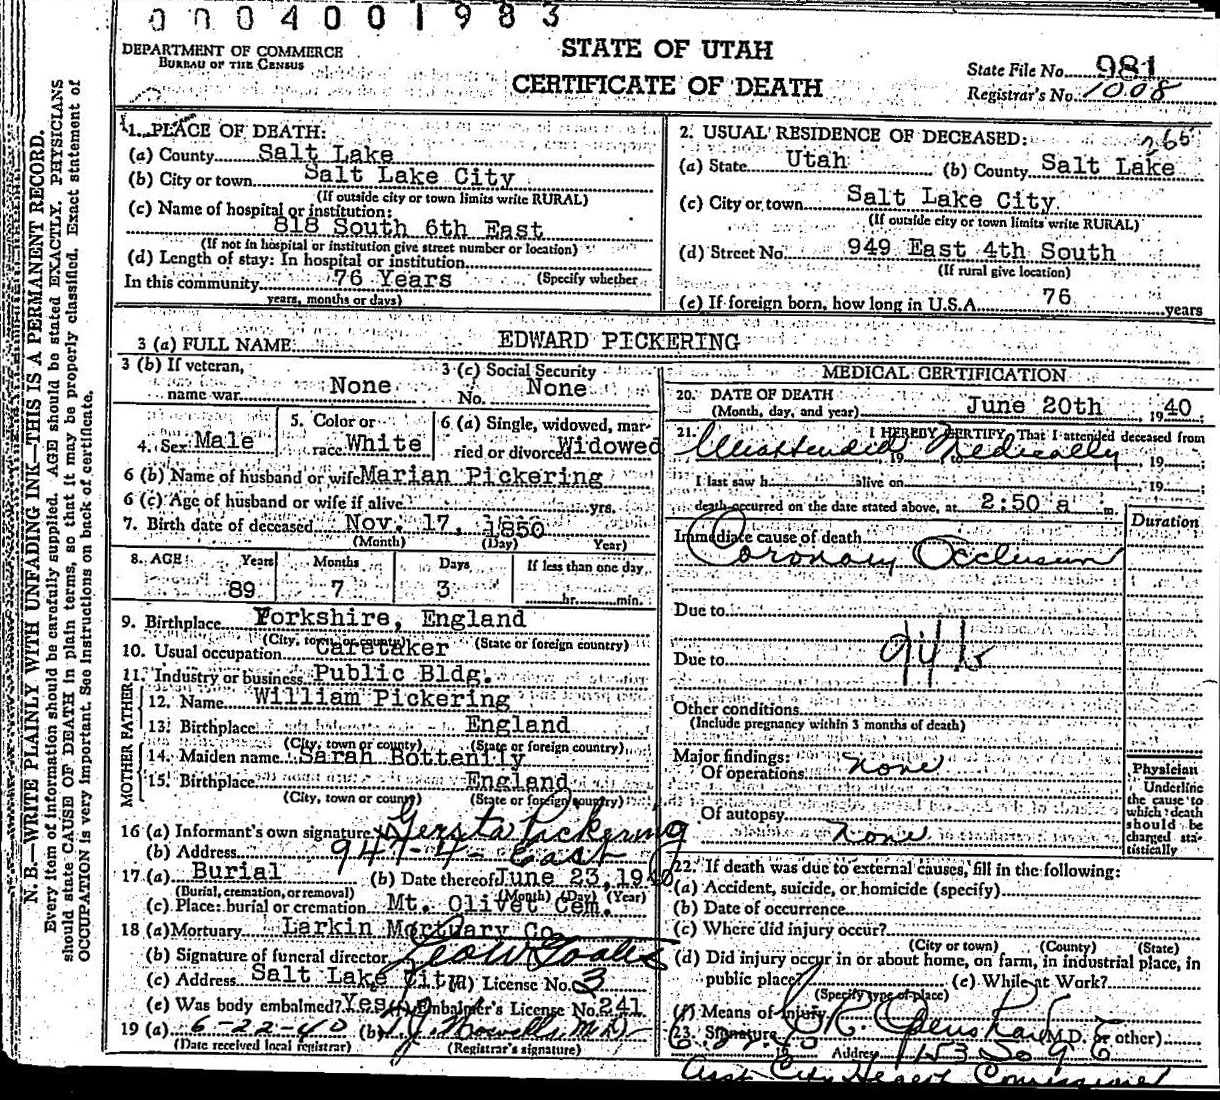 0004001983
DEPARTMENT OF COMMERCE
BUREAU OF THE CENSUS
STATE OF UTAH
CERTIFICATE OF DEATH
State File No. 981
Registrar's No. 1008
N. B.—WRITE PLAINLY WITH UNFADING INK—THIS IS A PERMANENT RECORD.
Every item of information should be carefully supplied. AGE should be stated EXACTLY. PHYSICIANS
should state CAUSE OF DEATH in plain terms, so that it may be properly classified. Exact statement of
OCCUPATION is very important. See instructions on back of certificate.
1. PLACE OF DEATH:
(a) County Salt Lake
(b) City or town Salt Lake City
(If outside city or town limits write RURAL)
(c) Name of hospital or institution:
818 South 6th East
(If not in hospital or institution give street number or location)
(d) Length of stay: In hospital or institution
In this community 76 Years (Specify whether
years, months or days)
2. USUAL RESIDENCE OF DECEASED: 266
(a) State Utah (b) County Salt Lake
(c) City or town Salt Lake City
(If outside city or town limits write RURAL)
(d) Street No. 949 East 4th South
(If rural give location)
(e) If foreign born, how long in U.S.A. 76 years
3 (a) FULL NAME EDWARD PICKERING
3 (b) If veteran,
name war None
3 (c) Social Security
No. None
4. Sex Male
5. Color or
race White
6 (a) Single, widowed, mar-
ried or divorced Widowed
6 (b) Name of husband or wife Marian Pickering
6 (c) Age of husband or wife if alive yrs.
7. Birth date of deceased Nov. 17, 1850
(Month) (Day) Year)
8. AGE Years Months Days If less than one day
89 7 3 hr. min.
9. Birthplace Yorkshire, England
(City, town or county) (State or foreign country)
10. Usual occupation Caretaker
11. Industry or business Public Bldg.
FATHER
12. Name William Pickering
13. Birthplace England
(City, town or county) (State or foreign country)
MOTHER
14. Maiden name Sarah Bottenily
15. Birthplace England
(City, town or county) (State or foreign country)
16 (a) Informant's own signature Pickering
(b) Address 947-4- East
17. (a) Burial (b) Date thereof June 23, 1940
(Burial, cremation, or removal) (Month) (Day) (Year)
(c) Place: burial or cremation Mt. Olivet Cem.
18 (a) Mortuary Larkin Mortuary Co
(b) Signature of funeral director
(c) Address Salt Lake City (d) License No. 3
(e) Was body embalmed? Yes Embalmer's License No. 241
19 (a) 6-22-40 (b) M.D.
(Date received local registrar) (Registrar's signature)
MEDICAL CERTIFICATION
20. DATE OF DEATH
(Month, day, and year) June 20th, 1940
21. I HEREBY CERTIFY That I attended deceased from
Unattended Medically, 19 to , 19
I last saw h alive on , 19
death occurred on the date stated above, at 2:50 a m.
Duration
Immediate cause of death
Coronary Occlusion
Due to
Due to
Other conditions
(Include pregnancy within 3 months of death)
Major findings:
Of operations none
Of autopsy
none
Physician
Underline
the cause to
which death
should be
charged sta-
tistically
22. If death was due to external causes, fill in the following:
(a) Accident, suicide, or homicide (specify)
(b) Date of occurrence
(c) Where did injury occur?
(City or town) (County) (State)
(d) Did injury occur in or about home, on farm, in industrial place, in
public place? (e) While at Work?
(Specify type of place)
(f) Means of injury
23. Signature (M.D. or other)
Address 1153 So 9 E
Asst City Health Commissioner